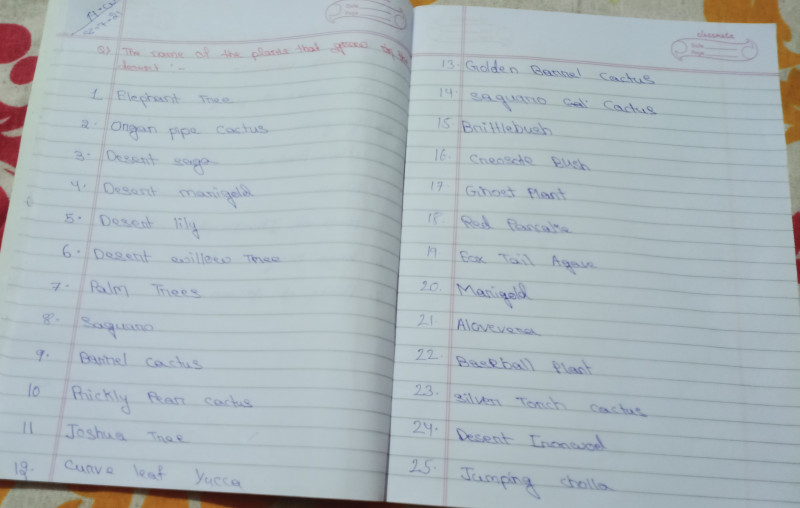 Q) The name of the plants that grow in the
desert :-
1. Elephant Tree
2. Organ pipe cactus
3. Desert saga
4. Desert marigold
5. Desert lily
6. Desert willow Tree
7. Palm Trees
8. Saguaro
9. Barrel cactus
10 Prickly Pear cactus
11 Joshua Tree
12. Curve leaf Yucca
classmate
Date
Page
13 Golden Barrel Cactus
14. Saguaro Cactus
15 Brittlebush
16. Creosote Bush
17 Ghost Plant
18 Red
19 Fox Tail Agave
20. Marigold
21. Alovevera
22 Baseball Plant
23. Silver Torch cactus
24. Desert Ironwood
25. Jumping cholla